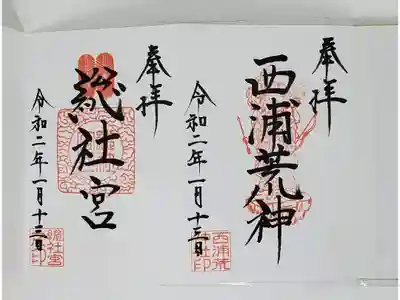 奉拝
西浦荒神
令和二年一月十三日
西浦荒
神社印
奉拝
総社宮
令和二年一月十三日
総社宮
印